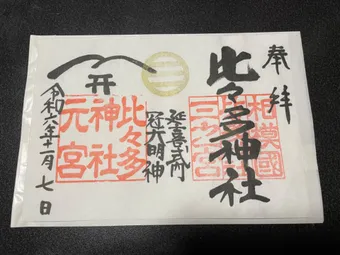 奉拝
相模國
比々多神社
三之宮
延喜式内
冠大明神
比々多
神社
元宮
令和六年十一月七日